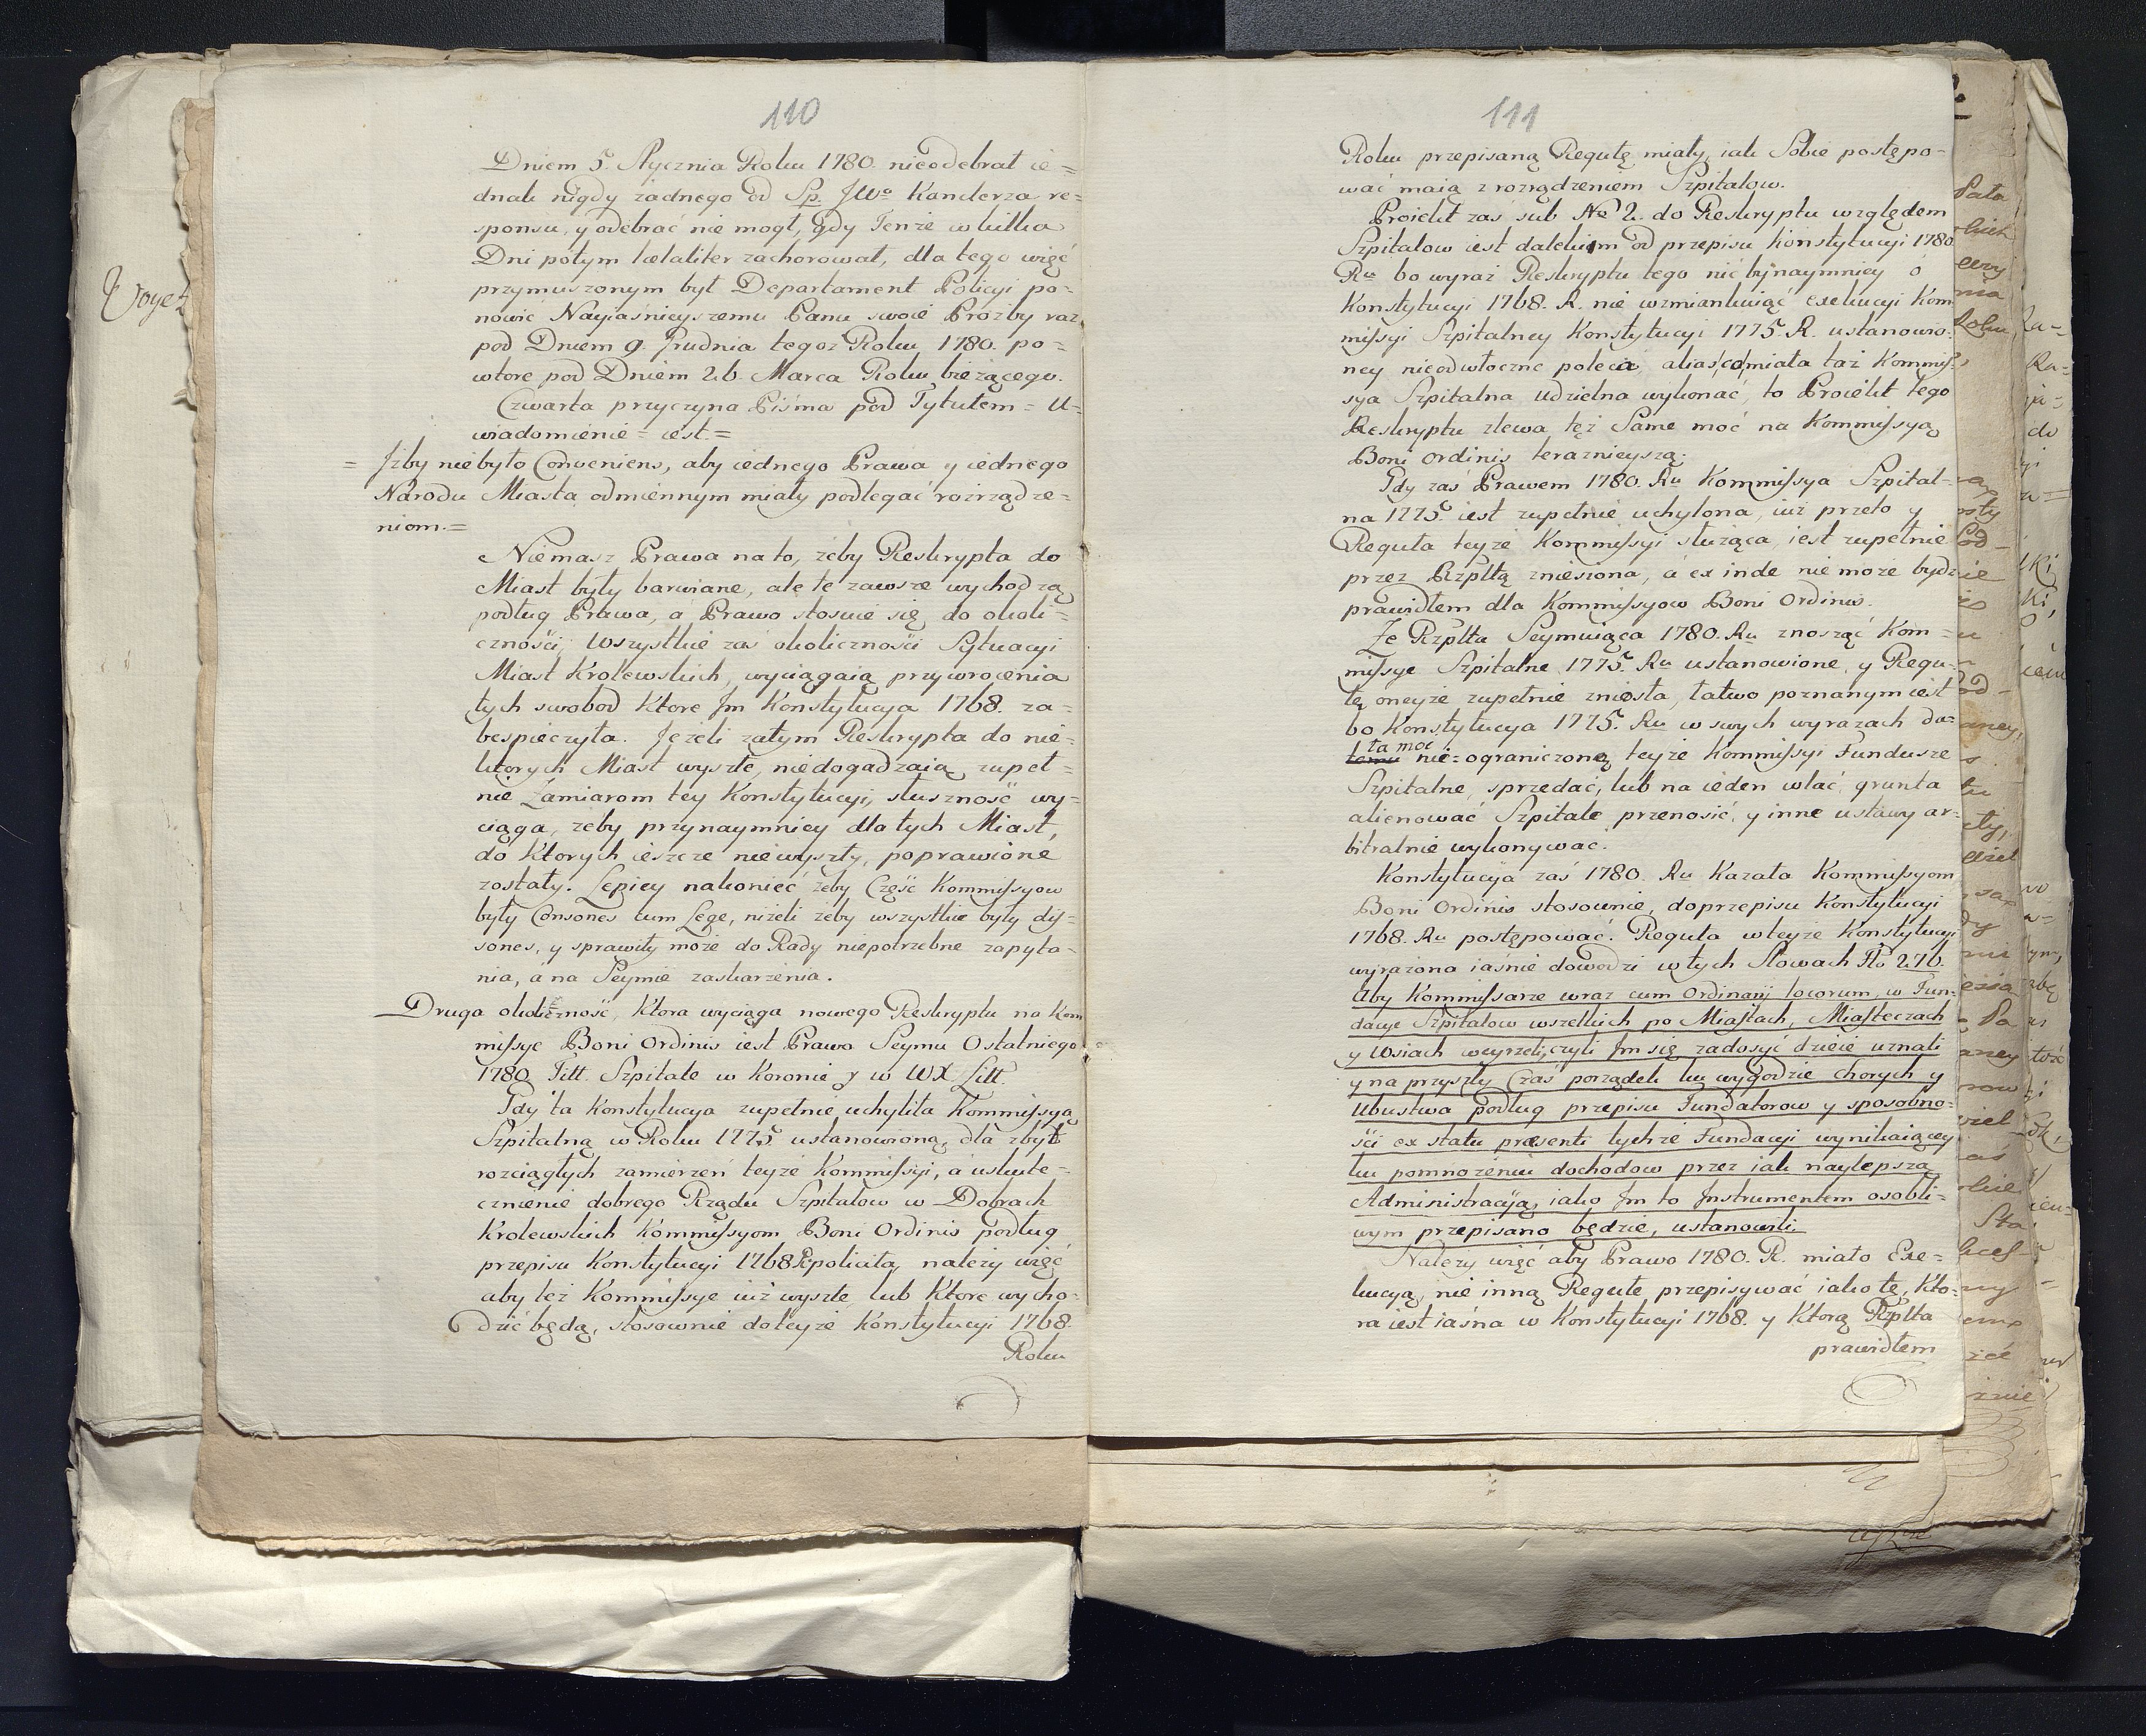 110
Dniem 5. Stycznia Roku 1780. nieodebrał ie=
dnak nigdy żadnego od Sp. JWo Kanclerza re=
sponsu, y odebrać nie mogł, gdy Tenże w kilka
Dni potym letaliter zachorował, dla tego więc
przymuszonym był Departament Policyi po=
nowić Nayiaśnieyszemu Panu swoie Prozby raz
pod Dniem 9. Grudnia tegoż Roku 1780. po=
wtore pod Dniem 26. Marca Roku bieżącego.
Czwarta przyczyna Pisma pod Tytułem = U=
wiadomienie = iest. =
= Jżby niebyło Conveniens, aby iednego Prawa y iednego
Narodu Miasta odmiennym miały podlegać rozrządze=
niom. =
Niemasz Prawa na to, żeby Reskrypta do
Miast były barwiane, ale te zawsze wychodzą
podług Prawa, a Prawo stosuie się do okoli=
czności, Wszystkie zaś okoliczności Sytuacyi
Miast Krolewskich, wyciągaią przywrocenia
tych swobod Ktore Jm Konstytucya 1768. za=
bespieczyła. Jeżeli zatym Reskrypta do nie=
ktorych Miast wyszłe, niedogadzaią zupeł=
nie Zamiarom tey Konstytucyi, słuszność wy=
ciąga, żeby przynaymniey dla tych Miast,
do Ktorych ieszcze niewyszły, poprawione
zostały. Lepiey nakoniec żeby Część Kommissyow
były Consones cum Lege, niżeli żeby wszystkie były dys=
sones, y sprawiły może do Rady niepotrzebne zapyta=
nia, a na Seymie zaskarżenia.
Druga okoliczność, Ktora wyciąga nowego Reskryptu na Kom
missye Boni Ordinis iest Prawo Seymu Ostatniego
1780 Titt. Szpitale w Koronie y w WX Litt.
Gdy ta Konstytucya zupełnie uchyliła Kommissyą
Szpitalną w Roku 1775 ustanowioną, dla zbyt
rozciągłych zamierzeń teyże Kommissyi, a uskute=
cznienie dobrego Rządu Szpitalow w Dobrach
Krolewskich Kommissyom Boni Ordinis podług
przepisu Konstytucyi 1768 R poleciła, należy więc
aby też Kommissye iuż wyszłe, lub Ktore wycho=
dzić będą, stosownie do teyże Konstytucyi 1768.
Roku
111
Roku przepisaną Regułę miały, iak Sobie postępo=
wać maią z rozrządzeniem Szpitalow.
Proiekt zaś sub No 2. do Reskryptu względem
Szpitalow iest dalekim od przepisu Konstytucyi 1780
Ru bo wyraz Reskryptu tego nic bynaymniey o
Konstytucyi 1768. R. nie wzmiankuiąc exekucyi Kom
missyi Szpitalney Konstytucyi 1775. R. ustanowio=
ney nieodwłoczne poleca alias, co miała taż Kommis=
sya Szpitalna udzielna wykonać, to Proiekt tego
Reskryptu zlewa też Same moć na Kommissyą
Boni Ordinis teraznieyszą.
Gdy zaś Prawem 1780. Ru Kommissya Szpital=
na 1775. iest zupełnie uchylona, iuż przeto y
Reguła teyże Kommissyi służąca, iest zupełnie
przez Rzpltą zniesiona, a ex inde nie może bydź
prawidłem dla Kommissyow Boni Ordinis.
Że Rzplta Seymuiąca 1780. Ru znosząc Kom=
missye Szpitalne 1775. Ru ustanowione, y Regu=
łę oneyże zupełnie zniosła, łatwo poznanym iest
bo Konstytucya 1775. Ru w swych wyrazach da=
ła moc nie=ograniczoną teyże Kommissyi Fundusze
Szpitalne, sprzedać, lub na ieden wlać, grunta
alienować Szpitale przenosić, y inne ustawy ar=
bitralnie wykonywać.
Konstytucya zaś 1780. Ru Kazała Kommissyom
Boni Ordinis stosownie, do przepisu Konstytucyi
1768. Ru postępować. Reguła w teyże Konstytucyi
wyrażona iaśnie dowodzi w tych Słowach Flo 276.
aby Kommissarze wraz cum Ordinarij locorum, w Fun=
dacye Szpitalow wszelkich po Miastach, Miasteczach
y Wsiach weyrzeli, czyli Jm się zadosyć dzieie uznali
y na przyszły Czas porządek ku wygodzie chorych y
Ubustwa podług przepisu Fundatorow y sposobno=
ści ex statu præsenti tychże Fundacyi wynikaiącey
ku pomnożeniu dochodow przez iak naylepszą
Administracyą, iako Jm to Jnstrumentem osobli=
wym przepisano będzie, ustanowili.
Należy więc aby Prawo 1780. R. miało Exe=
kucyą, nie inną Regułę przepisywać iako tę, Kto=
ra iest iaśna w Konstytucyi 1768. y Ktorą Rzplta
prawidłem